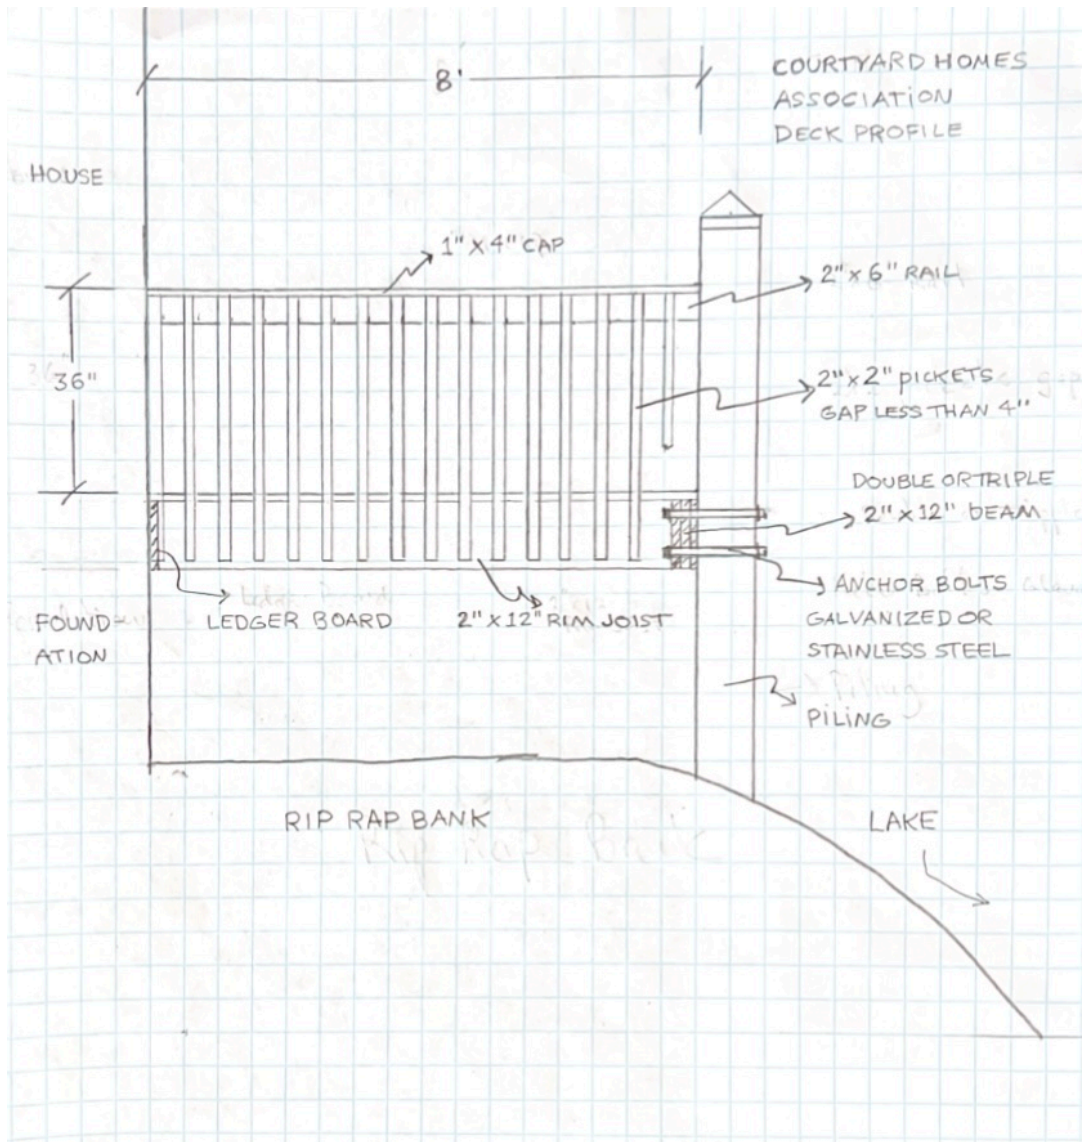 8'
COURTYARD HOMES
ASSOCIATION
DECK PROFILE
HOUSE
1" X 4" CAP
2" x 6" RAIL
36"
2" x 2" PICKETS
GAP LESS THAN 4"
DOUBLE OR TRIPLE
2" x 12" BEAM
ANCHOR BOLTS
GALVANIZED OR
STAINLESS STEEL
LEDGER BOARD
2" X 12" RIM JOIST
FOUND-
ATION
PILING
RIP RAP BANK
LAKE